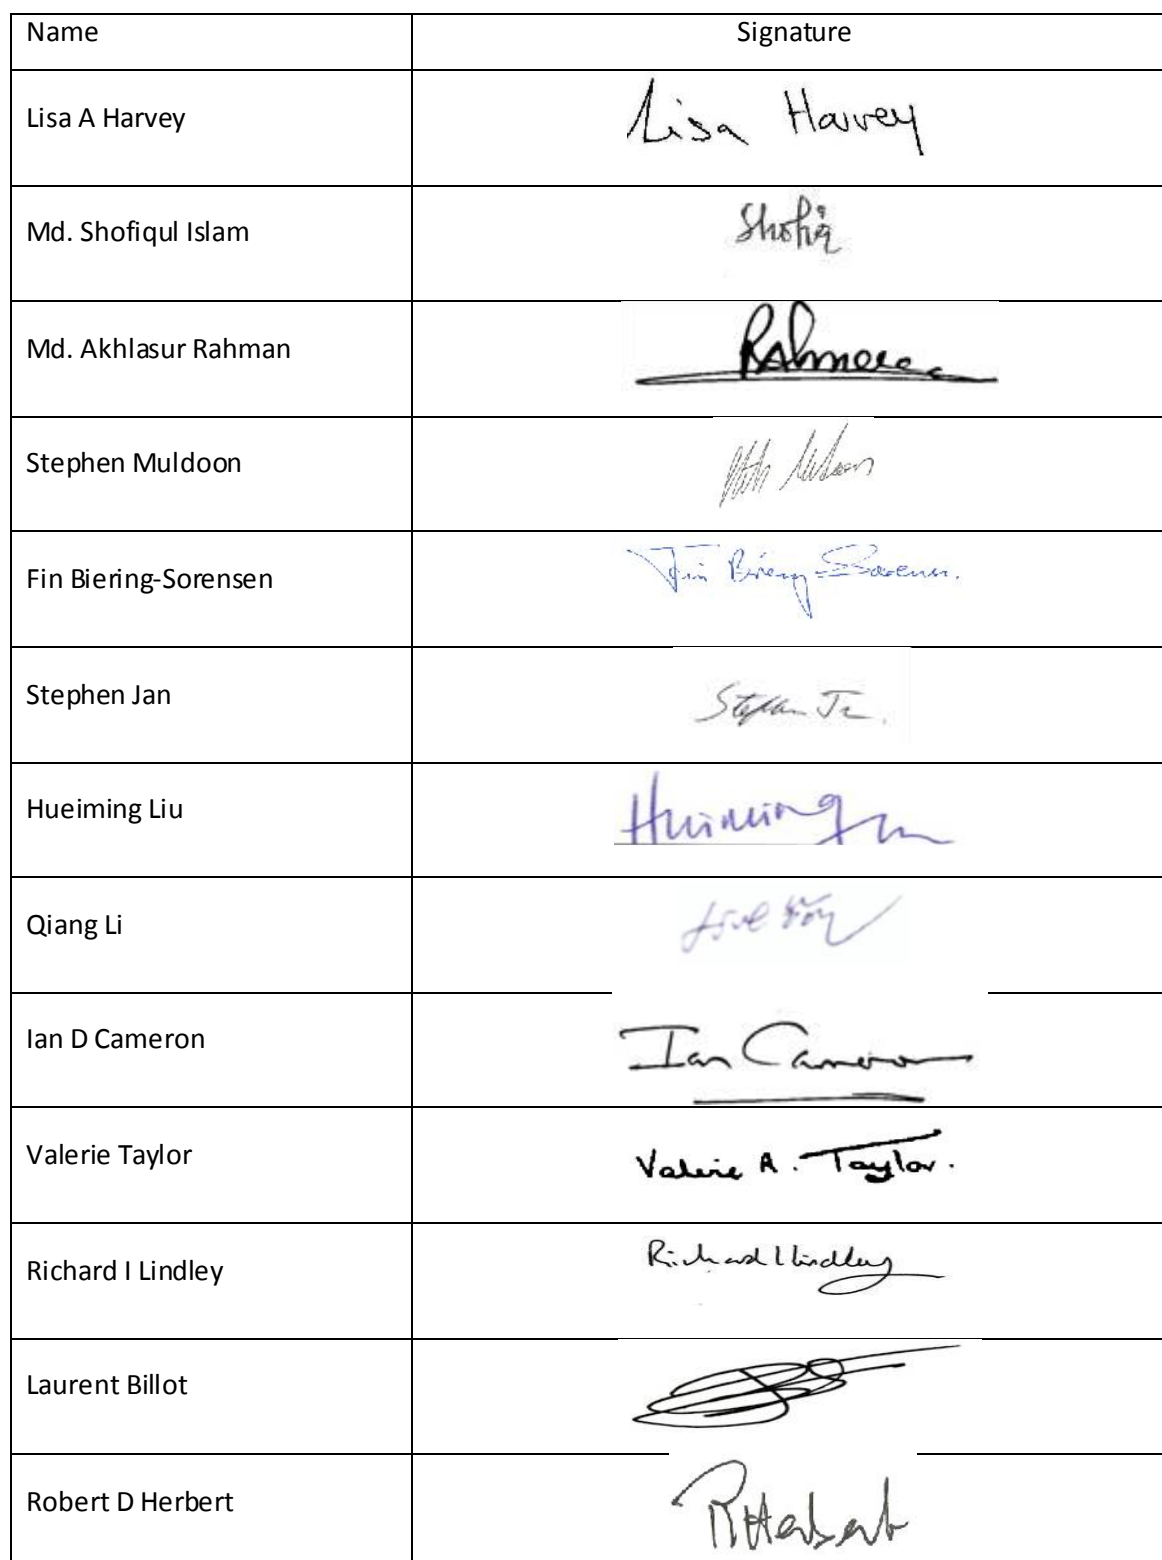 Name Signature
Lisa A Harvey Lisa Harvey
Md. Shofiqul Islam Shofiq
Md. Akhlasur Rahman Rahman
Stephen Muldoon
Fin Biering-Sorensen Fin Biering-Sorensen.
Stephen Jan Stephen Jan.
Hueiming Liu Hueiming
Qiang Li
Ian D Cameron Ian Cameron
Valerie Taylor Valerie A. Taylor.
Richard I Lindley Richard I Lindley
Laurent Billot
Robert D Herbert R Herbert